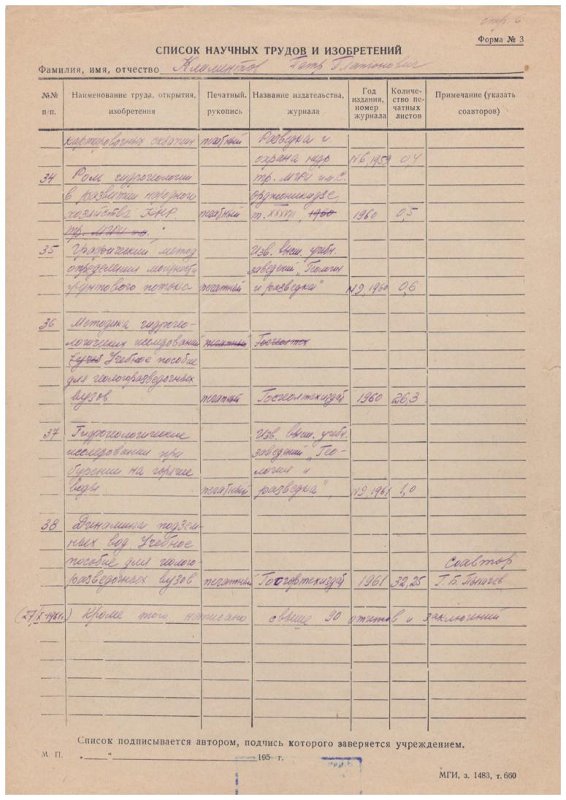 стр. 6
Форма № 3
СПИСОК НАУЧНЫХ ТРУДОВ И ИЗОБРЕТЕНИЙ
Фамилия, имя, отчество Климентов Петр Платонович
№№ п/п. Наименование труда, открытия, изобретения Печатный, рукопись Название издательства, журнала Год издания, номер журнала Количество печатных листов Примечание (указать соавторов)
картировочных скважин печатный Разведка и
охрана недр №6, 1959 0,4
34 Роль гидрогеологии тр. МГРИ им. С.
в развитии народного Орджоникидзе
хозяйства КНР печатный т. XXXVI, 1960 1960 0,5
тр. МГРИ
35 Графический метод Изв. высш. учебн.
определения мощности заведений "Геология
грунтового потока печатный и разведка" №9, 1960 0,6
36 Методика гидрогео-
логических исследований печатный Госгеолтех
Учебное пособие
для геологоразведочных
вузов печатный Госгеолтехиздат 1960 26,3
37 Гидрогеологические Изв. высш. учебн.
исследования при заведений "Гео-
бурении на горячие логия и
воды печатный разведка" №9, 1961 1,0
38 Динамика подзем-
ных вод Учебное
пособие для геолого- соавтор
разведочных вузов печатный Госгортехиздат 1961 32,25 Г. Б. Пыхачев
Кроме того написано свыше 90 отчетов и заключений
Список подписывается автором, подпись которого заверяется учреждением.
М. П. „ " 195 г.
МГИ, з. 1483, т. 660